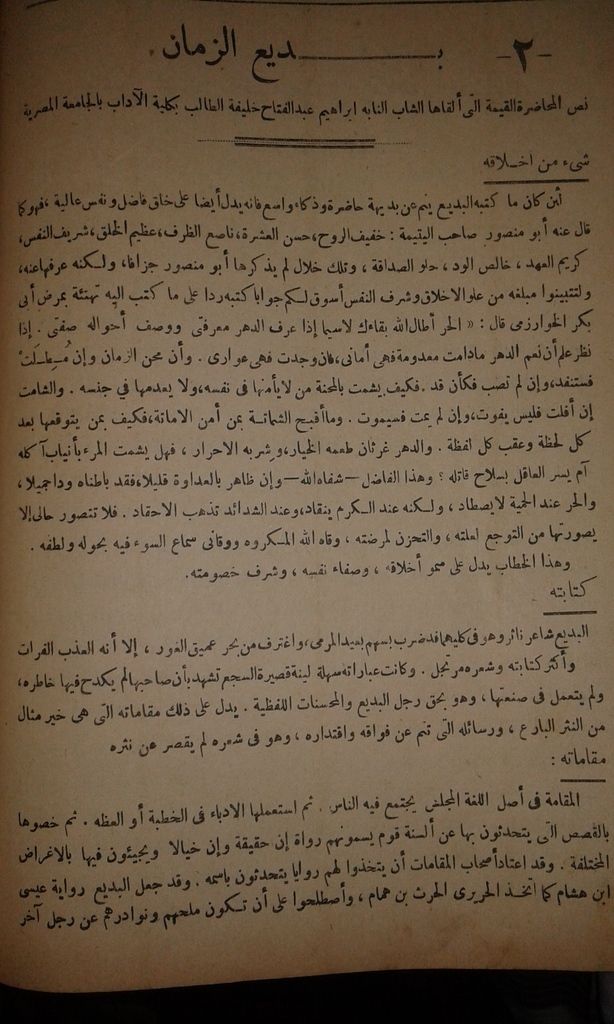 - ٢ -
بـــديع الزمان
نص المحاضرة القيمة التى ألقاها الشاب النابه ابراهيم عبدالفتاح خليفة الطالب بكلية الآداب بالجامعة المصرية
شىء من اخـلاقه
لئن كان ما كتبه البديع ينم عن بديهة حاضرة وذكاء واسع فانه يدل أيضا على خلق فاضل ونفس عالية ، فهو كما
قال عنه أبو منصور صاحب اليتيمة : خفيف الروح ، حسن العشرة ، ناصع الظرف ، عظيم الخلق ، شريف النفس ،
كريم العهد ، خالص الود ، حلو الصداقة ، وتلك خلال لم يذكرها أبو منصور جزافا ، ولـكنه عرفها عنه ،
ولتتبينوا مبلغه من علو الاخلاق وشرف النفس أسوق لـكم جوابا كتبه ردا على ما كتب اليه تهنئة بمرض أبى
بكر الخوارزمى قال : « الحر أطال الله بقاءك لاسيما إذا عرف الدهر معرفتى ووصف أحواله صفتى . إذا
نظر علم أن نعم الدهر مادامت معدومة فهى أمانى ، فان وجدت فهى عوارى . وأن محن الزمان وإن مُـطـلَـتْ
فستنفد ، وإن لم تصب فكأن قد . فكيف يشمت بالمحنة من لا يأمنها فى نفسه ، ولا يعدمها في جنسه . والشامت
إن أفلت فليس يفوت ، وإن لم يمت فسيموت . وما أقبح الشماتـة بمن أمن الاماتة ، فكيف بمن يتوقعها بعد
كل لحظة وعقب كل لفظة . والدهر غرثان طعمه الخيار ، وشربه الاحرار ، فهل يشمت المرء بأنياب آكله
أم يسر العاقل بسلاح قاتله ؟ وهذا الفاضل — شفاه الله — وإن ظاهر بالعداوة قليلا ، فقد باطناه ودا جميلا ،
والحر عند الحمية لا يصطاد ، ولـكنه عند الـكرم ينقاد ، وعند الشدائد تذهب الاحقاد . فلا تتصور حالى إلا
بصورتها من التوجع لعلته ، والتحزن لمرضته ، وقاه الله المـكروه ووقانى سماع السوء فيه بحوله ولطفه .
وهذا الخطاب يدل على سمو أخلاقه ، وصفاء نفسه ، وشرف خصومته .
كتابته
البديع شاعر ناثر وهو فى كليهما قد ضرب بسهم بعيد المرمى ، واغترف من بحر عميق الغور ، إلا أنه العذب الفرات
وأكثر كتابته وشعره مرتجل . وكانت عباراته سهلة لينة قصيرة السجع تشهد بأن صاحبها لم يكدح فيها خاطره ،
ولم يتعمل فى صنعتها ، وهو بحق رجل البديع والمحسنات اللفظية . يدل على ذلك مقاماته التى هى خير مثال
من النثر البارع ، ورسائله التى تنم عن فواقه واقتداره ، وهو فى شعره لم يقصر عن نثره
مقاماته :
المقامة فى أصل اللغة المجلس يجتمع فيه الناس . ثم استعملها الادباء فى الخطبة أو العظه . ثم خصوها
بالقصص التى يتحدثون بها عن ألسنة قوم يسمونهم رواة إن حقيقة وإن خيالا ويجيئون فيها بالاغراض
المختلفة . وقد اعتاد أصحاب المقامات أن يتخذوا لهم روايا يتحدثون باسمه . وقد جعل البديع رواية عيسى
ابن هشام كما اتخـذ الحريرى الحرث بن همام ، وأصطلحوا على أن تـكون ملحهم ونوادرهم عن رجل آخر